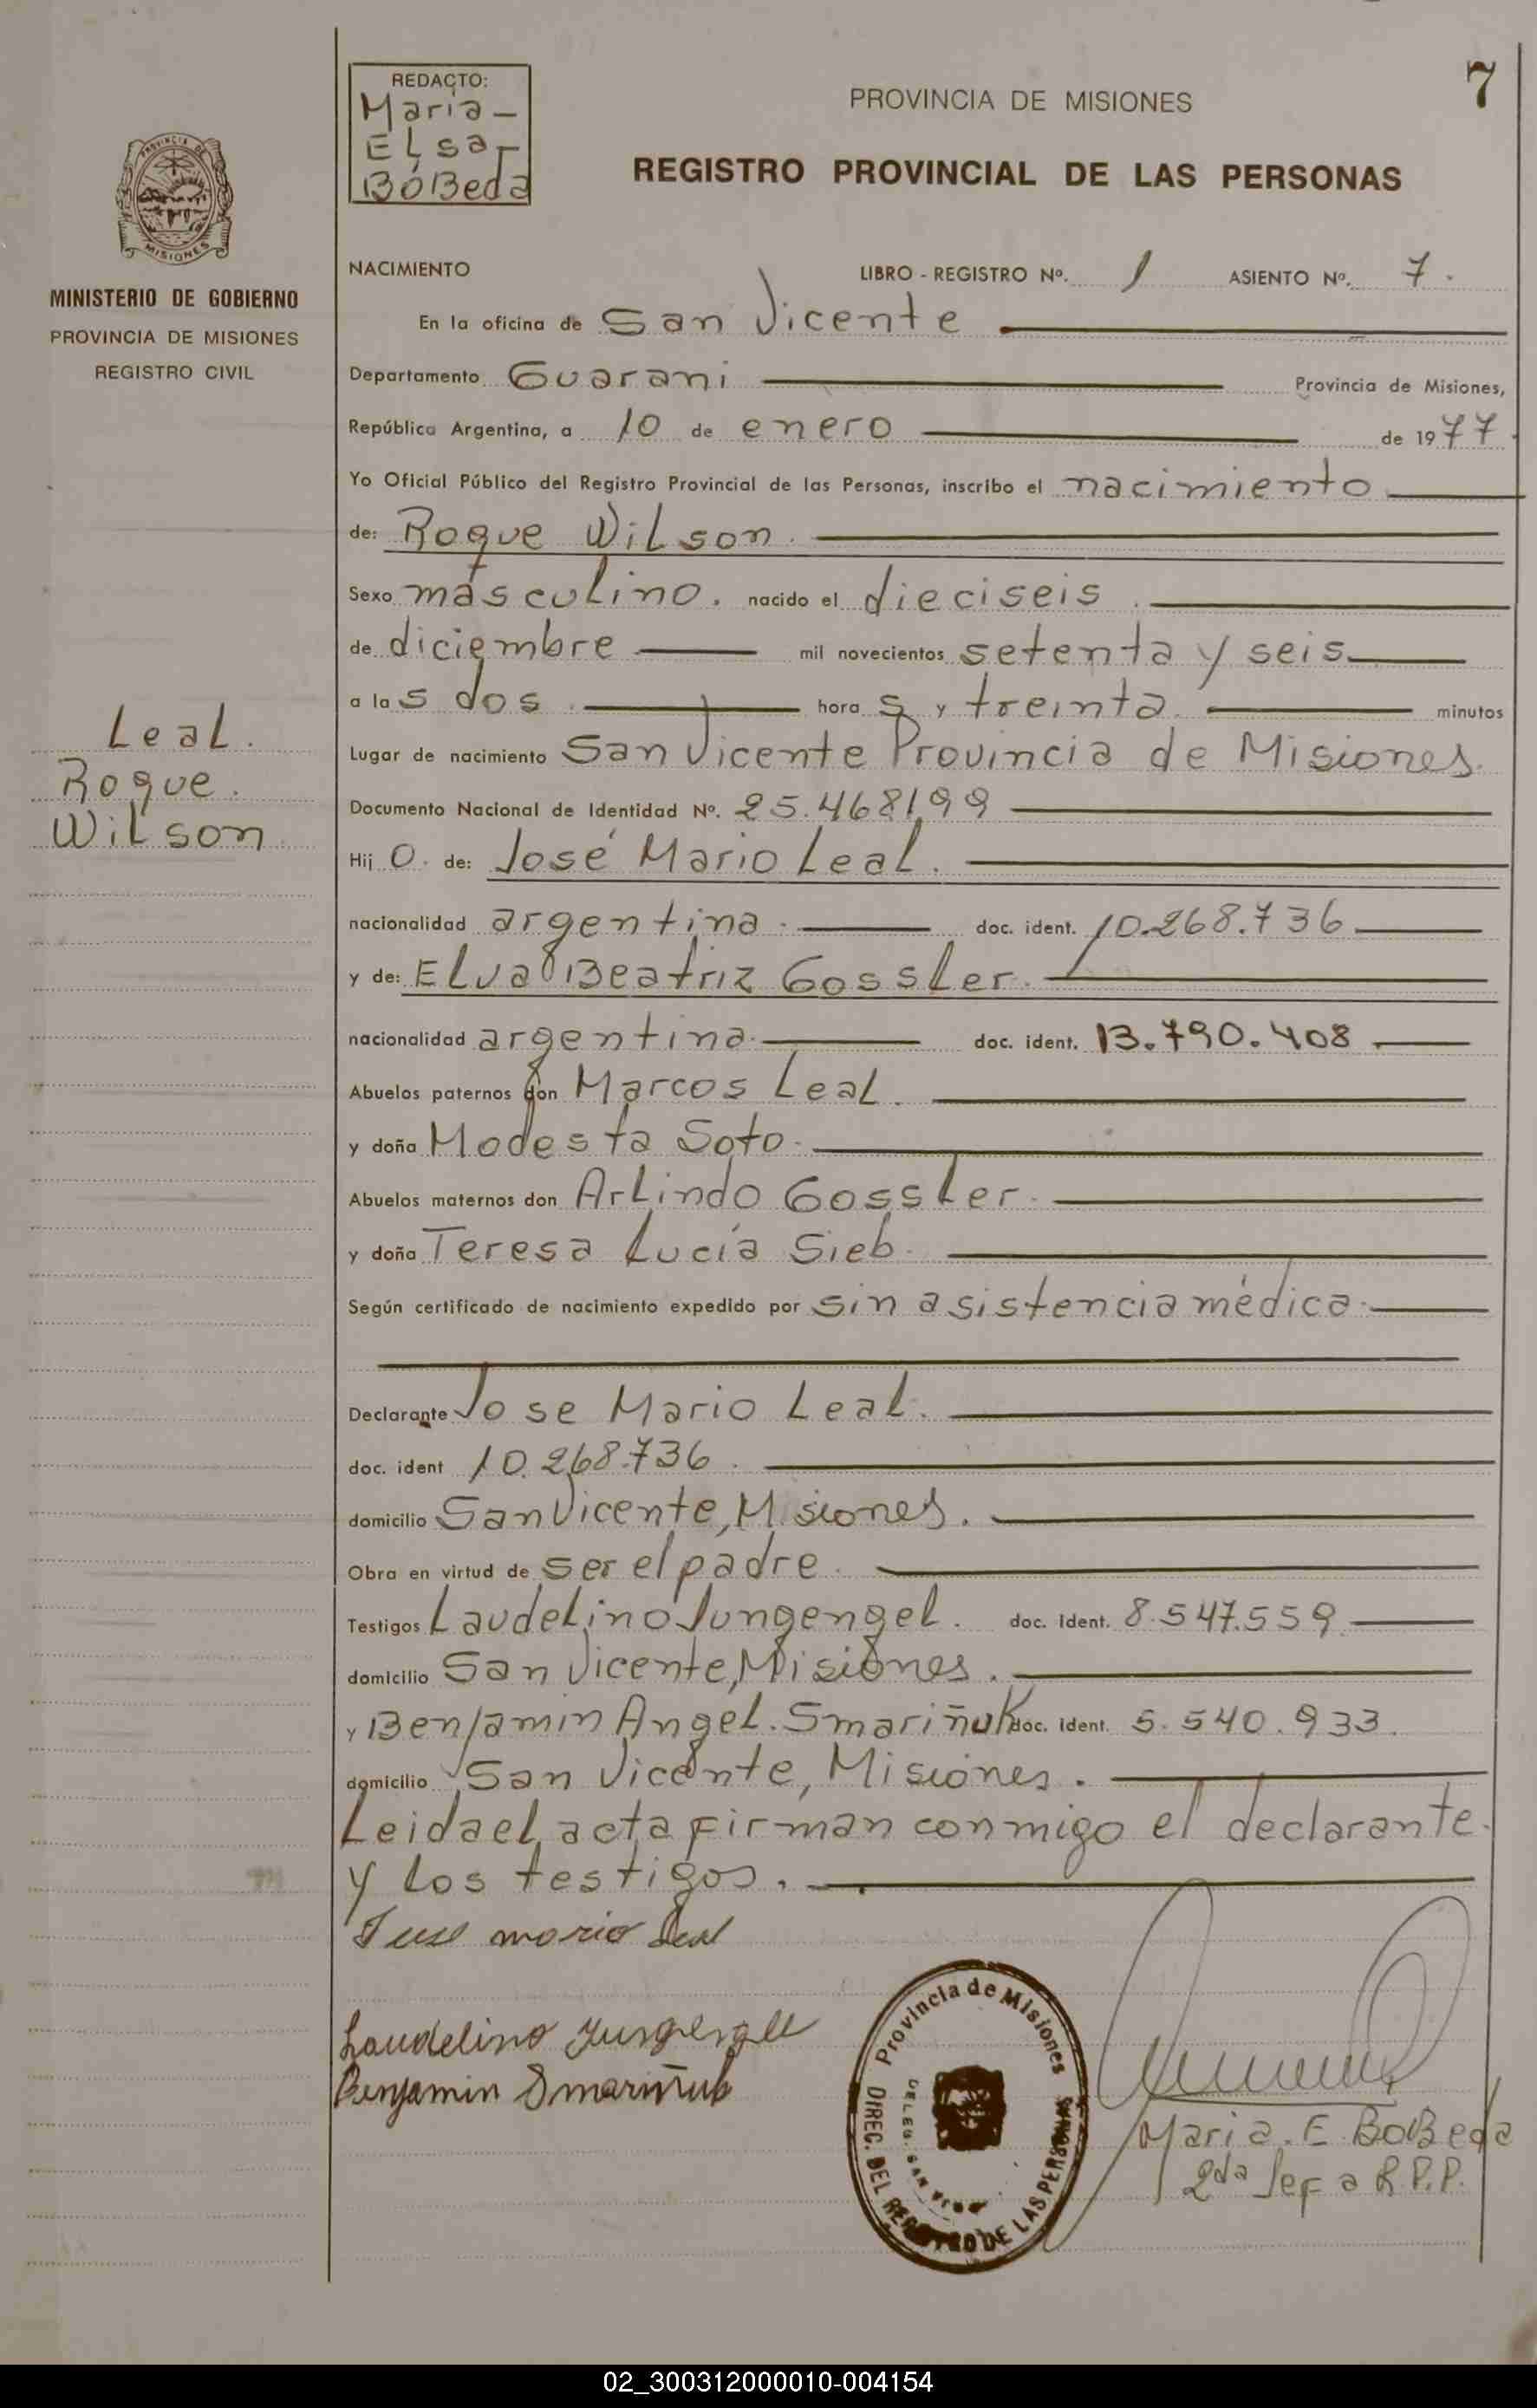 7
REDACTO:
Maria
Elsa
BoBeda
PROVINCIA DE MISIONES
REGISTRO PROVINCIAL DE LAS PERSONAS
MISIONES
MINISTERIO DE GOBIERNO
PROVINCIA DE MISIONES
REGISTRO CIVIL
NACIMIENTO LIBRO - REGISTRO Nº. 1 ASIENTO Nº. 7.
En la oficina de San Vicente
Departamento Guarani Provincia de Misiones,
República Argentina, a 10 de enero de 1977.
Yo Oficial Público del Registro Provincial de las Personas, inscribo el nacimiento
de: Roque Wilson.
Sexo masculino. nacido el dieciseis
de diciembre mil novecientos setenta y seis
a las dos horas y treinta minutos
Leal.
Roque.
Wilson
Lugar de nacimiento San Vicente Provincia de Misiones.
Documento Nacional de Identidad Nº. 25.468199
Hijo. de: José Mario Leal.
nacionalidad argentina. doc. ident. 10.268.736
y de: Elva Beatriz Gossler.
nacionalidad argentina. doc. ident. 13.790.408
Abuelos paternos don Marcos Leal.
y doña Modesta Soto.
Abuelos maternos don Arlindo Gossler.
y doña Teresa Lucía Sieb.
Según certificado de nacimiento expedido por sin asistencia médica.
Declarante Jose Mario Leal.
doc. ident 10.268.736.
domicilio San Vicente, Misiones.
Obra en virtud de ser el padre.
Testigos Laudelino Jungengel. doc. ident. 8.547.559
domicilio San Vicente, Misiones.
y Benjamin Angel. Smariñuk doc. ident. 5.540.933.
domicilio San Vicente, Misiones.
Leida el acta firman conmigo el declarante
y los testigos.
Jose mario Leal
Laudelino
Benjamin Smariñuk
Provincia de Misiones
DIREC. DEL REGISTRO DE LAS PERSONAS
DELEG. SAN
Maria. E. BoBeda
2da Jefa R.P.P.
02_300312000010-004154